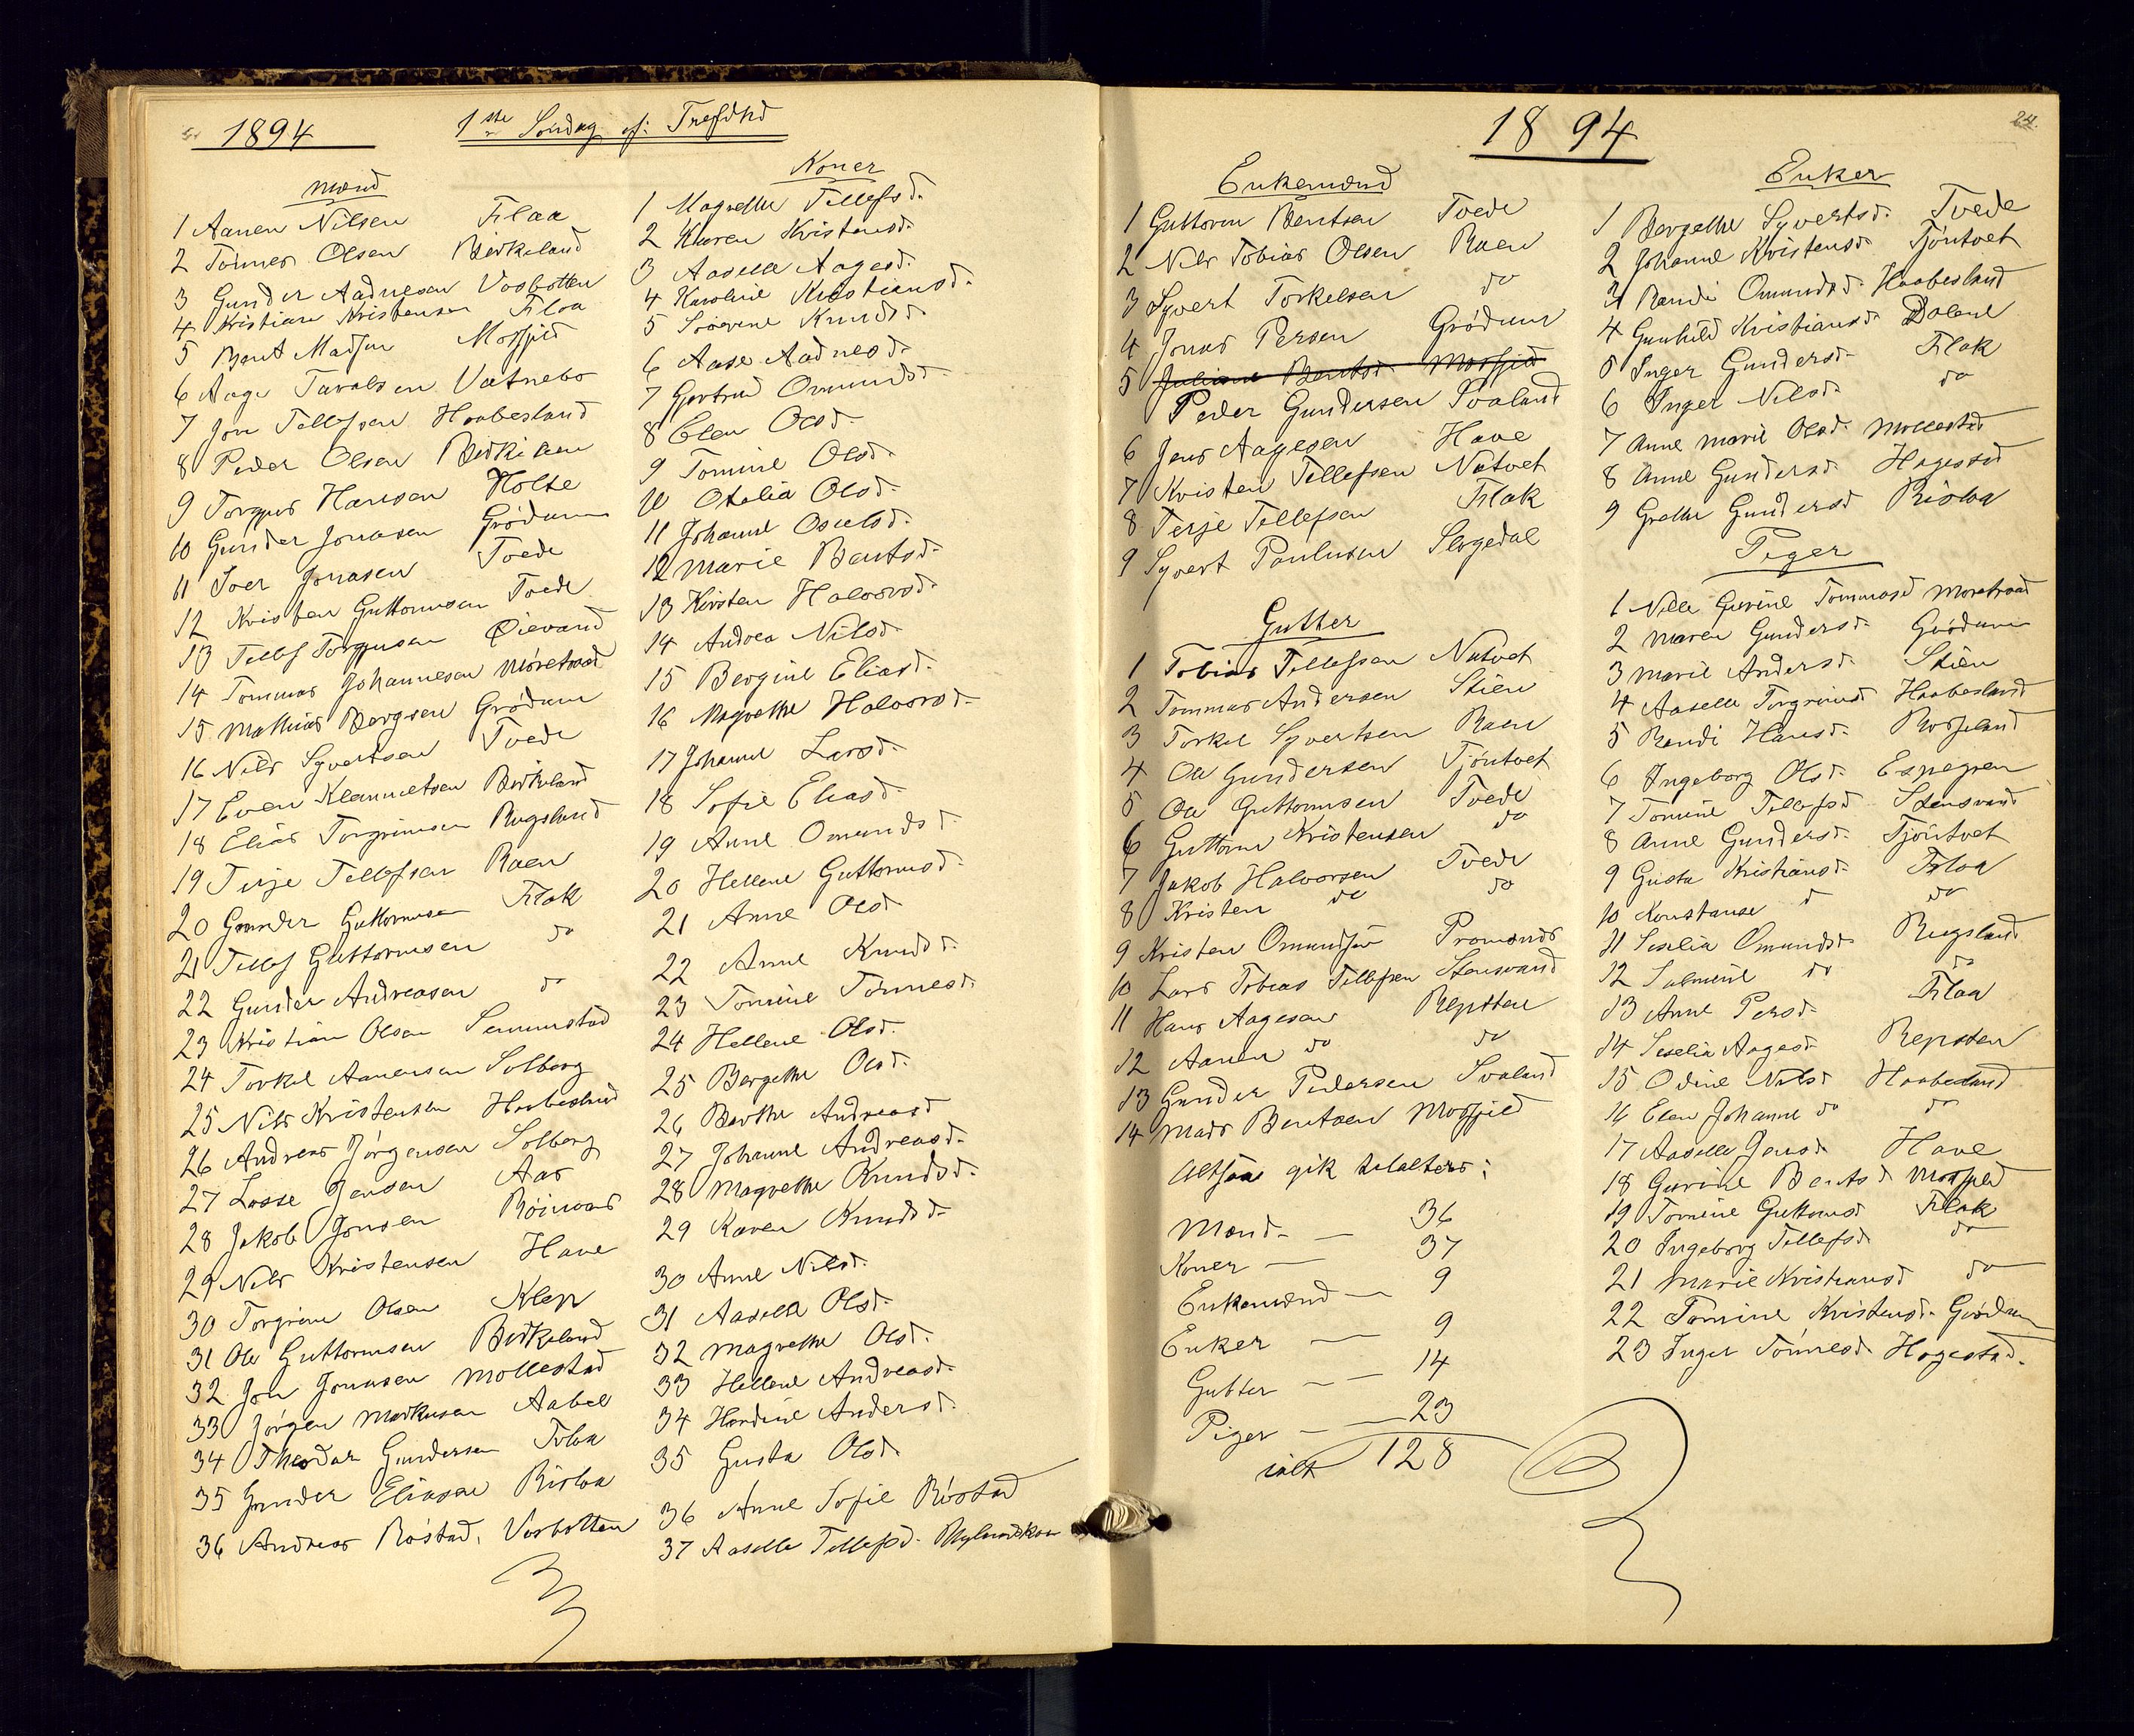 1894
1ste Søndag ef: Trefdhd
Mænd
1 Aanen Nilsen Flaa
2 Tønnes Olsen Birkeland
3 Gunder Aadnesen Vosbotten
4 Kristian Kristensen Floa
5 Bent Madsen Mosfjeld
6 Aage Taralsen Vatnebo
7 Jon Tellefsen Haabesland
8 Peder Olsen
9 Torgus Hansen Holte
10 Gunder Jonasen Grødum
11 Iver Jonasen Tvede
12 Kristen Guttormsen Tvede
13 Tellef Torgusen Øievand
14 Tommas Johannesen Møretraad
15 Mathias Bergsen Grødum
16 Nils Syvertsen Tvede
17 Even Klemmetsen Birkeland
18 Elias Torgrimsen Rugsland
19 Terje Tellefsen Raen
20 Gunder Guttormsen Flak
21 Tellef Guttormsen do
22 Gunder Andreasen do
23 Kristian Olsen Senumstad
24 Torkel Aanensen Solberg
25 Nils Kristensen Haabesland
26 Andreas Jørgensen Solberg
27 Lasse Jensen Aas
28 Jakob Jonsen
29 Nils Kristensen Have
30 Torgrim Olsen Klep
31 Ole Guttormsen Birkeland
32 Jon Jonasen Mollestad
33 Jørgen Markusen Aabel
34 Theodor Gundersen Floa
35 Gunder Eliasen Risloa
36 Andreas Røstad, Vosbotten
Koner
1 Magrethe Tellefsd.
2 Karen Kristensd.
3 Aaselle Aagesd.
4 Karoline Kristiansd.
5 Severine Knudsd
6 Aase Aadnesd.
7 Gjertrud Omundsd
8 Elen Olsd.
9 Tomine Olsd.
10 Otalia Olsd.
11 Johanne Osulsd.
12 Marie Bentsd.
13 Kirsten Halvorsd.
14 Andrea Nilsd.
15 Bergine Eliasd.
16 Magrethe Halvorsd.
17 Johanne Larsd.
18 Sofie Eliasd.
19 Anne Omundsd
20 Hellene Guttormsd.
21 Anne Olsd
22 Anne Knudsd.
23 Tomine Tønnesd.
24 Hellene Olsd.
25 Bergethe Olsd.
26 Berthe Andreasd
27 Johanne Andreasd.
28 Magrethe Knudsd.
29 Karen Knudsd.
30 Anne Nilsd.
31 Aaselle Olsd.
32 Magrethe Olsd.
33 Hellene Andreasd.
34 Hardine Andersd.
35 Gusta Olsd.
36 Anne Sofie Røstad
37 Aaselle Tellefsd.
1894
24.
Enkemænd
1 Guttorm Bentsen Tvede
2 Nils Tobias Olsen Raen
3 Syvert Torkelsen do
4 Jonas Persen Grødum
5 Juliane Bentsd. Mosfjeld
Peder Gundersen Svaland
6 Jens Aagesen Have
7 Kristen Tellefsen Natvet
8 Terje Tellefsen Flak
9 Syvert Paulusen Løgedal
Gutter
1 Tobias Tellefsen Natvet
2 Tommas Andersen Stien
3 Torkel Syvertsen Raen
4 Ole Gundersen Tjøntvet
5 Ole Guttormsen Tvede
6 Guttorm Kristensen do
7 Jakob Halvorsen Tvede
8 Kristen do do
9 Kristen Omundsen
10 Lars Tobias Tellefsen Stensvand
11 Hans Aagesen Repsten
12 Aanen do do
13 Gunder Pedersen Svaland
14 Mads Bentsen Mosfjeld
Altsaa gik tilalters:
Mænd — 36
Koner — 37
Enkemænd — 9
Enker — 9
Gutter — 14
Piger — 23
ialt 128
Enker
1 Bergethe Syvertsd. Tvede
2 Johanne Kristensd. Tjøntvet
3 Randi Omundsd. Haabesland
4 Gunhild Kristiansd. Dalene
5 Inger Gundersd. Flak
6 Inger Nilsd. do
7 Anne Marie Olsd. Mollestad
8 Anne Gundersd. Hagestad
9 Grethe Gundersd Risloa
Piger
1 Nille Gurine Tommasd Møretraad
2 Maren Gundersd. Grødum
3 Marie Andersd. Stien
4 Aaselle Torgrimsd Haabesland
5 Randi Hansd. Rosseland
6 Ingeborg Olsd. Espegren
7 Tomine Tellefsd Stensvand
8 Anne Gundersd. Tjøntvet
9 Gusta Kristiansd. Floa
10 Konstanse d do
11 Seselia Omundsd. Rugsland
12 Salmine do do
13 Anne Persd. Flaa
14 Seselia Aagesd. Repsten
15 Odine Nilsd Haabesland
16 Elen Johanne do do
17 Aaselle Jensd. Have
18 Gurine Bentsd Mosfjeld
19 Tomine Guttormsd Flak
20 Ingeborg Tellefsd. do
21 Marie Kristiansd do
22 Tomine Kristensd. Grødum
23 Inger Tønnesd. Hagestad.